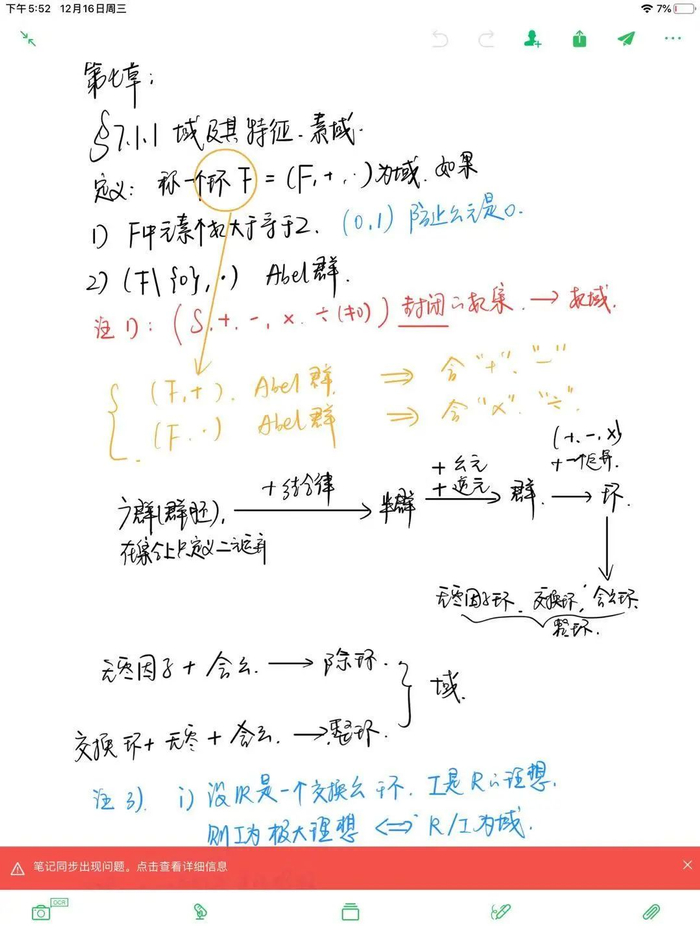 下午5:52 12月16日周三
7%
第七章：
§7.1.1 域及其特征、素域.
定义：称一个环 F = (F, +, ·) 为域. 如果
1) F中元素个数大于等于2. (0,1) 防止幺元是0.
2) (F\{0}, ·) Abel群.
注1)：(S, +, -, ×, ÷(≠0)) 封闭的数集. → 数域.
{ (F, +). Abel群 ⇒ 含 "+"、"-"
(F, ·) Abel群 ⇒ 含 "×"、"÷".
广群(群胚), + 结合律 → 半群 + 幺元 + 逆元 → 群. (+, -, ×) + 一个运算. → 环.
在集合上只定义二元运算
无零因子环、交换环, 含幺环
整环.
无零因子 + 含幺. → 除环.
} 域.
交换环 + 无零 + 含幺. → 整环.
注3). i) 设R是一个交换幺环. I是R的理想.
则I为极大理想 ⇔ R/I为域.
笔记同步出现问题。点击查看详细信息
OCR